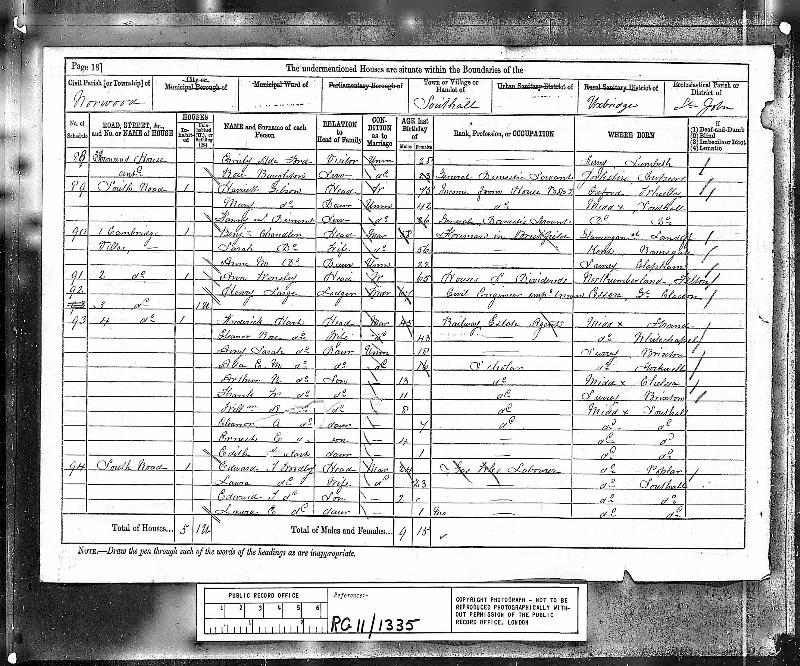 Page 18]
The undermentioned Houses are situate within the Boundaries of the
Civil Parish [or Township] of
City or Municipal Borough of
Municipal Ward of
Parliamentary Borough of
Town or Village or Hamlet of
Urban Sanitary District of
Rural Sanitary District of
Ecclesiastical Parish or District of
Norwood
Southall
Uxbridge
St John
No. of Schedule
ROAD, STREET, &c., and No. or NAME of HOUSE
HOUSES
Inhabited
Uninhabited (U.), or Building (B.)
NAME and Surname of each Person
RELATION to Head of Family
CONDITION as to Marriage
AGE last Birthday of
Males
Females
Rank, Profession, or OCCUPATION
WHERE BORN
If
(1) Deaf-and-Dumb
(2) Blind
(3) Imbecile or Idiot
(4) Lunatic
Emily Ada Ford Visitor Unm 25 Surrey Lambeth
Serv do 23 General Domestic Servant Yorkshire
89 South Road 1 Harriett Gibson Head W 73 Income from House Oxford
Mary do Daur Unm 42 do Middx Southall
Serv do 26 General Domestic Servant Do Do
90 1 Cambridge 1 Benjn Chandler Head Mar Foreman in Brickfields
Villas Sarah Do Wife do 56 Kent Ramsgate
Anne M Do Daur Unm 22 Surrey Clapham
91 2 do 1 Ann Head W 65 Houses & Dividends Northumberland
92 Henry Large Lodger Mar Civil Engineer Essex
3 do 1U
93 4 do 1 Frederick Hart Head Mar 45 Railway Estate Agents Middx Strand
Eleanor Rose do Wife do 43 do Whitechapel
Amy Sarah do Daur Unm 18 Surrey Brixton
Ada E. M do do do 16 Scholar do Stockwell
Arthur do Son 13 do Middx Chelsea
Frank W do do 11 do Surrey Brixton
Willm do 8 do Middx Southall
Eleanor A do daur 7 do do do
Ernest C do son 4 do do
Edith do daur 1 do do
94 South Road 1 Edward T Head Mar 24 Gas Labourer do Poplar
Laura do Wife do 23 do Southall
Edward T do Son 2 do do
Laura E do daur 1 Mo do do
Total of Houses... 5 1U
Total of Males and Females... 9 15
NOTE.—Draw the pen through such of the words of the headings as are inappropriate.
PUBLIC RECORD OFFICE
1 2 3 4 5 6
1 2
Reference:-
RG 11/1335
COPYRIGHT PHOTOGRAPH - NOT TO BE
REPRODUCED PHOTOGRAPHICALLY WITH-
OUT PERMISSION OF THE PUBLIC
RECORD OFFICE, LONDON